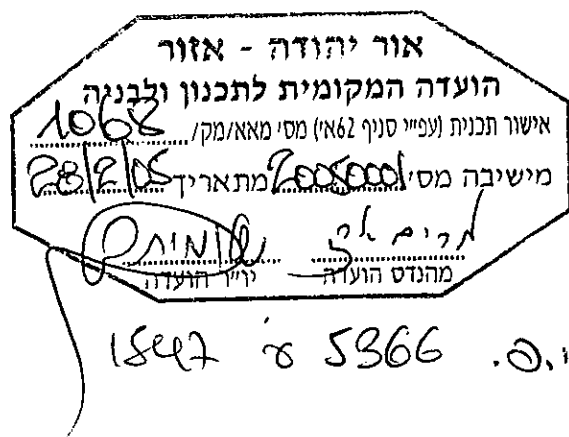 אור יהודה - אזור
הועדה המקומית לתכנון ולבניה
אישור תכנית (עפ"י סעיף 62א') מס' מאא/מק/ 1068
מישיבה מס' 20050001 מתאריך 28/2/05
מהנדס הועדה יו"ר הועדה
י.פ. 5366 ע' 1847